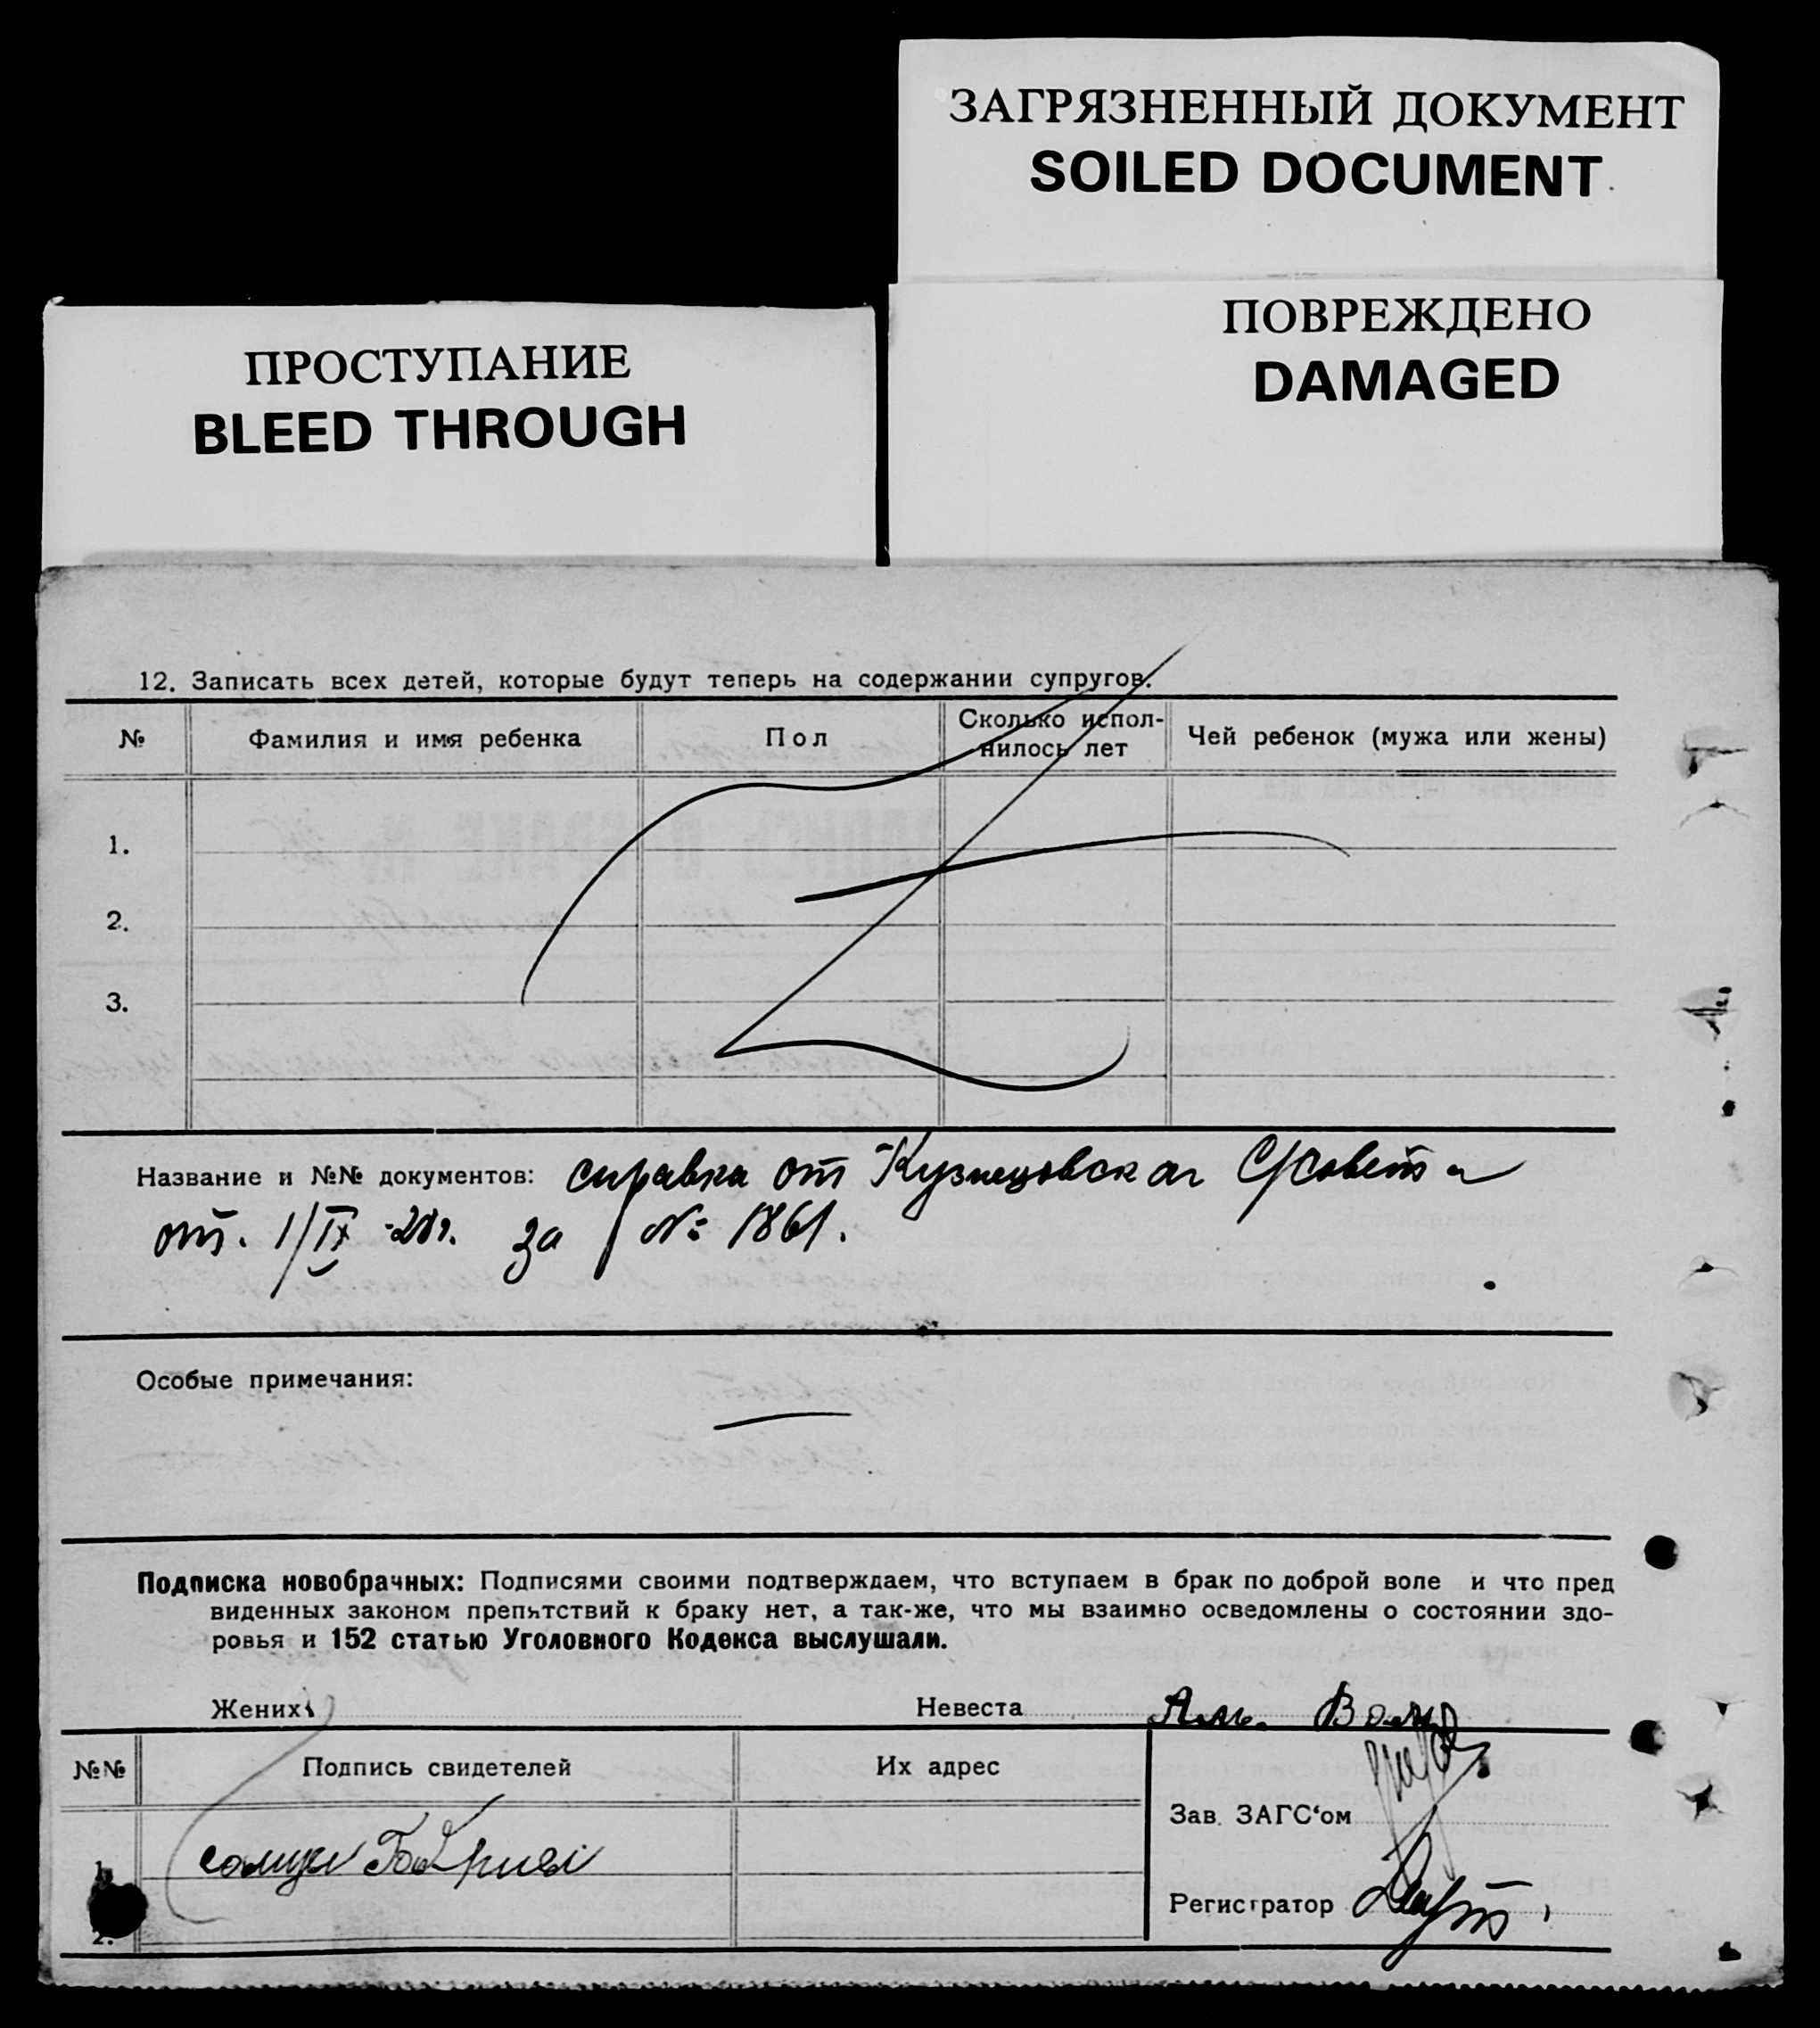 ЗАГРЯЗНЕННЫЙ ДОКУМЕНТ
SOILED DOCUMENT
ПОВРЕЖДЕНО
DAMAGED
ПРОСТУПАНИЕ
BLEED THROUGH
12. Записать всех детей, которые будут теперь на содержании супругов.
№ Фамилия и имя ребенка Пол Сколько испол-нилось лет Чей ребенок (мужа или жены)
1.
2.
3.
Название и №№ документов: справка от Кузнецовска С/совета
от. 1/IX-28г. за № 1861.
Особые примечания:
Подписка новобрачных: Подписями своими подтверждаем, что вступаем в брак по доброй воле и что пред
виденных законом препятствий к браку нет, а так-же, что мы взаимно осведомлены о состоянии здо-
ровья и 152 статью Уголовного Кодекса выслушали.
Жених Невеста
№№ Подпись свидетелей Их адрес
Зав. ЗАГС'ом
1.
Регистратор
2.